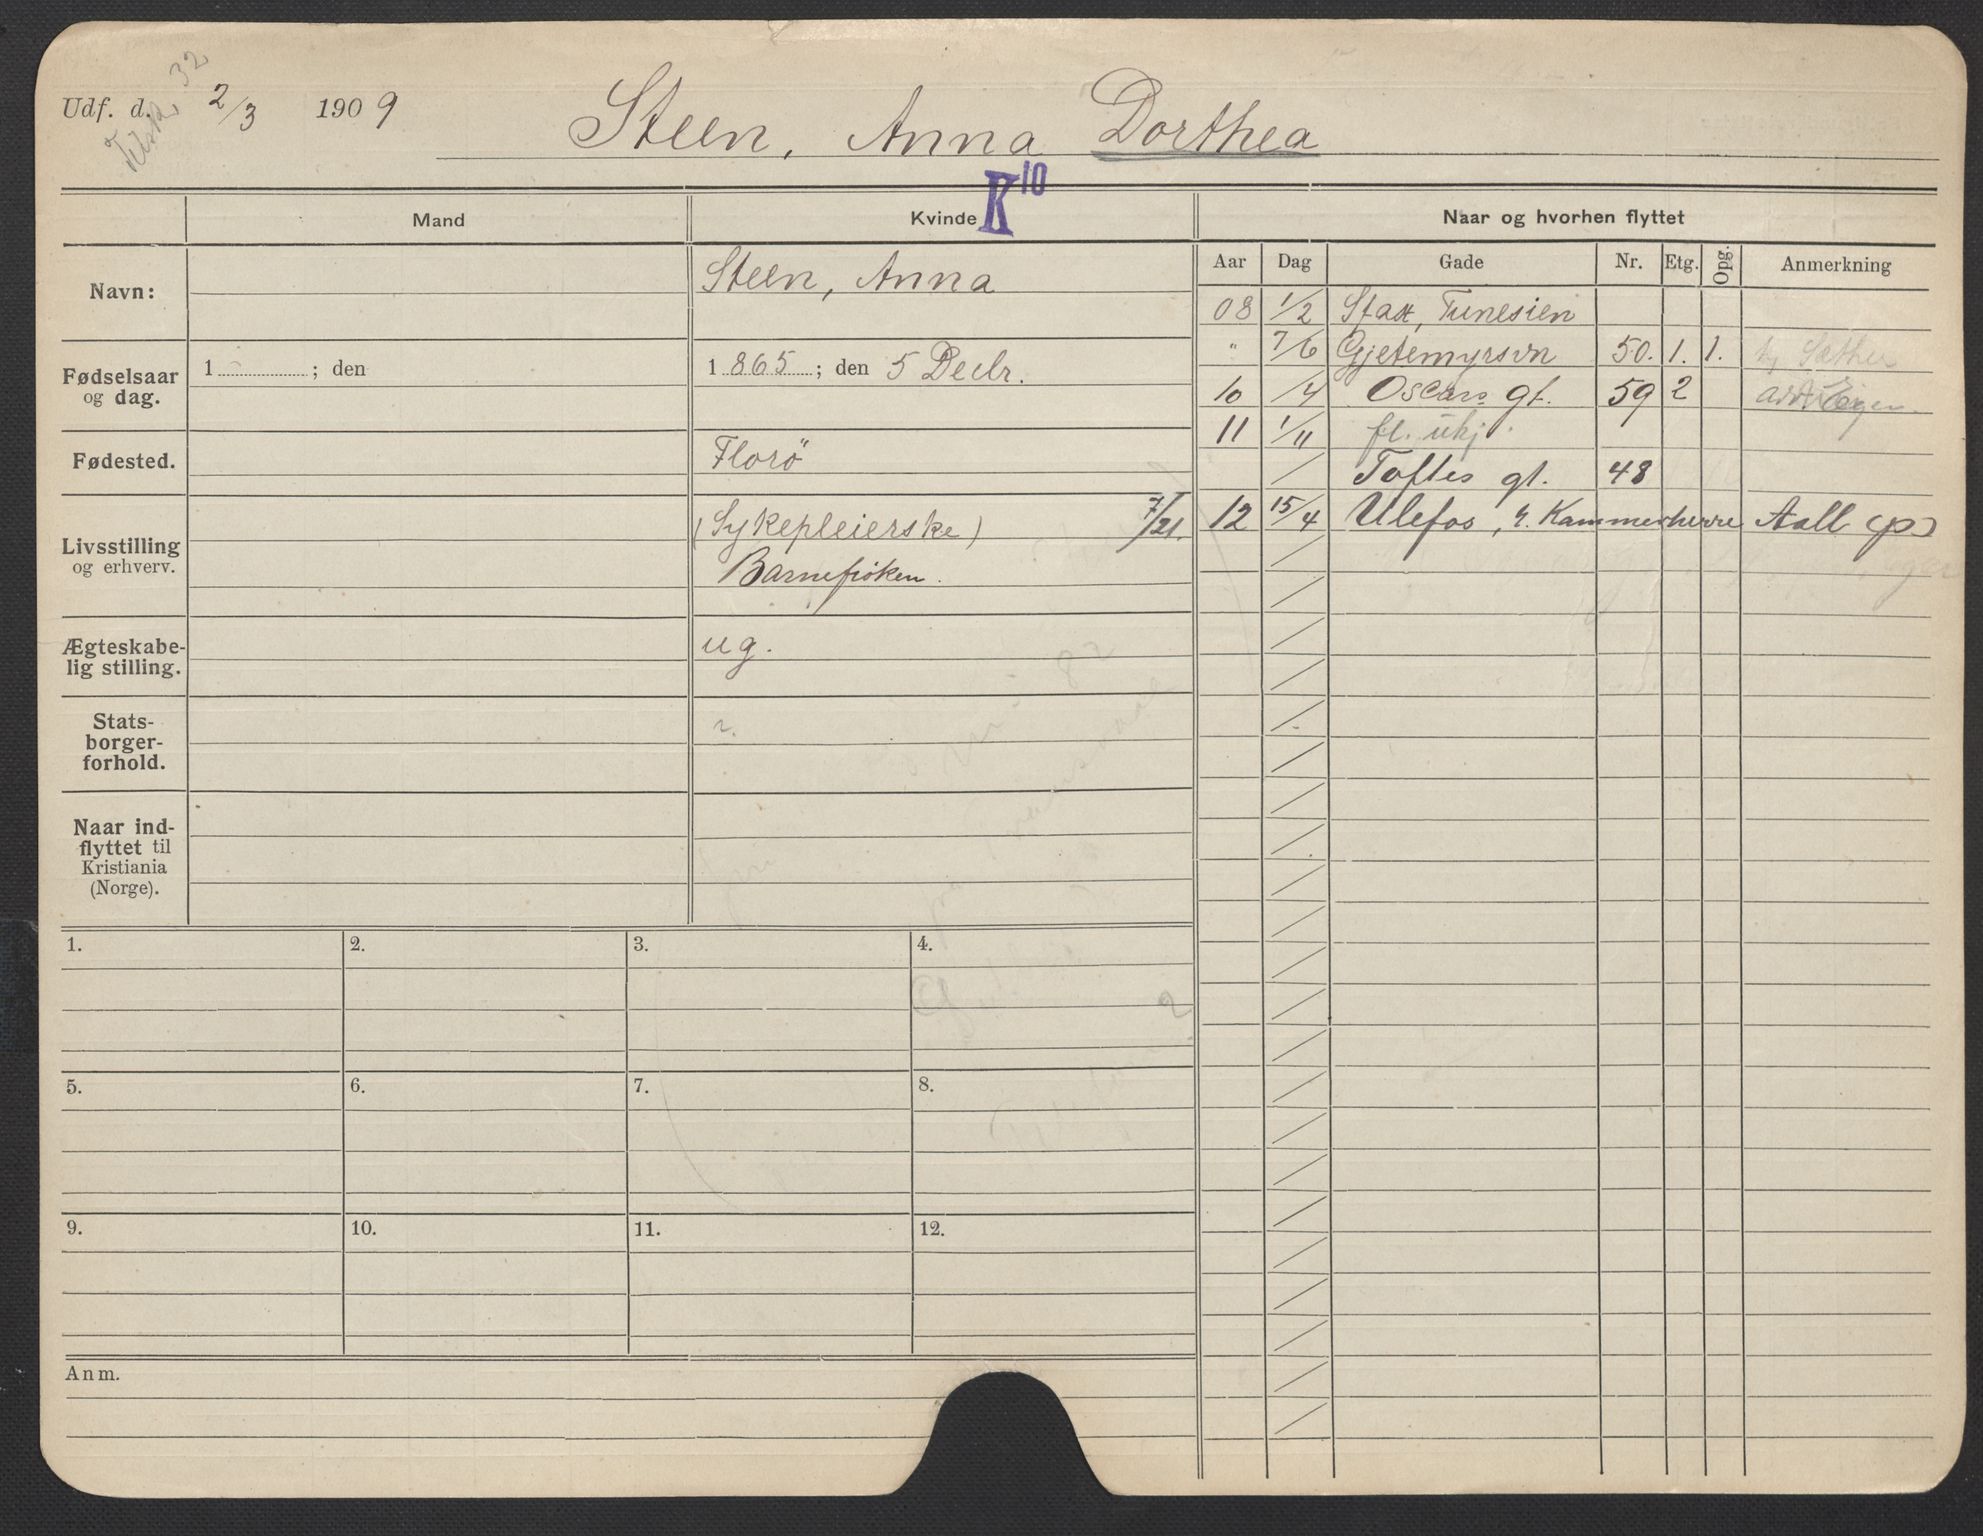 Udf. d. 2/3 1909
32
Steen, Anna Dorthea
K10
Mand
Kvinde
Naar og hvorhen flyttet
Aar Dag Gade Nr. Etg. Opg. Anmerkning
Navn:
Steen, Anna
08 1/2 Sfax, Tunesien
" 7/6 Gjetemyrsvn 50. 1. 1. Sæther
Fødselsaar
og dag.
1 ; den
1 865 ; den 5 Decbr.
10 /4 Oscars gt. 59 2
11 1/11 fl. ukj.
Fødested.
Florö
/ Toftes gt. 48
Livsstilling
og erhverv.
(Sykepleierske) 7/21.
Barnefrøken.
12 15/4 Ulefos, h. Kammerherre Aall (p)
Ægteskabe-
lig stilling.
ug.
Stats-
borger-
forhold.
n.
Naar ind-
flyttet til
Kristiania
(Norge).
1. 2. 3. 4.
5. 6. 7. 8.
9. 10. 11. 12.
Anm.